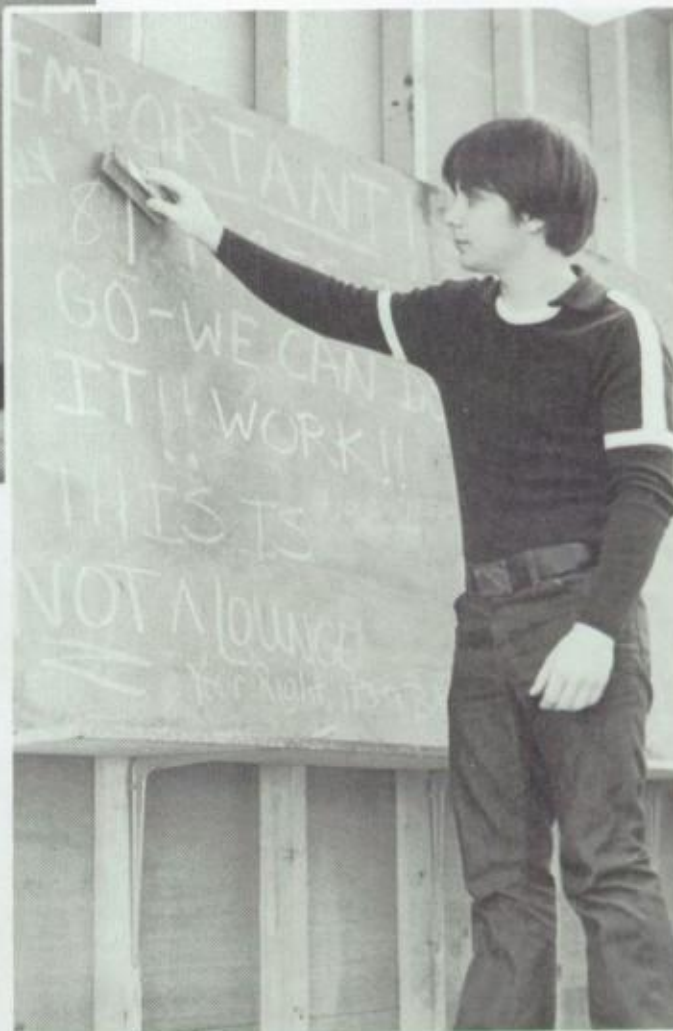 IMPORTANT!
81
GO-WE CAN
IT!! WORK!!
THIS IS
NOT A LOUNGE
Your Right, it's a